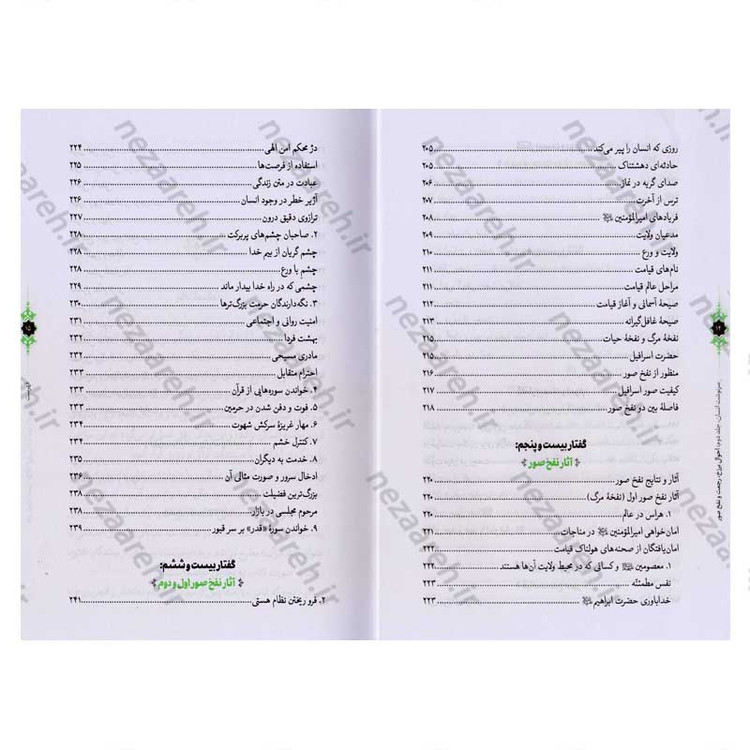 روزی که انسان را پیر می‌کند ۲۰۵
حادثه‌ای دهشتناک ۲۰۵
صدای گریه در نماز ۲۰۶
ترس از آخرت ۲۰۷
فریادهای امیرالمؤمنین ۲۰۸
مدعیان ولایت ۲۰۹
ولایت و ورع ۲۱۰
نام‌های قیامت ۲۱۱
مراحل عالم قیامت ۲۱۱
صیحۀ آسمانی و آغاز قیامت ۲۱۲
صیحۀ غافل‌گیرانه ۲۱۳
نفخۀ مرگ و نفخۀ حیات ۲۱۵
حضرت اسرافیل ۲۱۵
منظور از نفخ صور ۲۱۶
کیفیت صور اسرافیل ۲۱۷
فاصلۀ بین دو نفخ صور ۲۱۸
گفتار بیست و پنجم:
آثار نفخ صور
آثار و نتایج نفخ صور ۲۲۰
آثار نفخ صور اول (نفخۀ مرگ) ۲۲۰
۱. هراس در عالم ۲۲۰
امان‌خواهی امیرالمؤمنین در مناجات ۲۲۱
امان‌یافتگان از صحنه‌های هولناک قیامت ۲۲۲
۱. معصومین و کسانی که در محیط ولایت آن‌ها هستند ۲۲۲
نفس مطمئنّه ۲۲۳
خداباوری حضرت ابراهیم ۲۲۳
سرنوشت انسان، جلد دوم: احوال برزخ، رجعت و نفخ صور
دژ محکم امن الهی ۲۲۴
استفاده از فرصت‌ها ۲۲۵
عبادت در متن زندگی ۲۲۶
آژیر خطر در وجود انسان ۲۲۶
ترازوی دقیق درون ۲۲۷
۲. صاحبان چشم‌های پربرکت ۲۲۸
چشم گریان از بیم خدا ۲۲۸
چشم با ورع ۲۲۸
چشمی که در راه خدا بیدار ماند ۲۲۹
۳. نگه‌دارندگان حرمت بزرگ‌ترها ۲۳۰
امنیت روانی و اجتماعی ۲۳۱
بهشت فردا ۲۳۲
مادری مسیحی ۲۳۲
احترام متقابل ۲۳۳
۴. خواندن سوره‌هایی از قرآن ۲۳۳
۵. فوت و دفن شدن در حرمین ۲۳۳
۶. مهار غریزۀ سرکش شهوت ۲۳۴
۷. کنترل خشم ۲۳۴
۸. خدمت به دیگران ۲۳۵
ادخال سرور و صورت مثالی آن ۲۳۶
بزرگ‌ترین فضیلت ۲۳۸
مرحوم مجلسی در بازار ۲۳۸
۹. خواندن سورۀ «قدر» بر سر قبور ۲۳۹
گفتار بیست و ششم:
آثار نفخ صور اول و دوم
۲. فرو ریختن نظام هستی ۲۴۱
nezaareh.ir